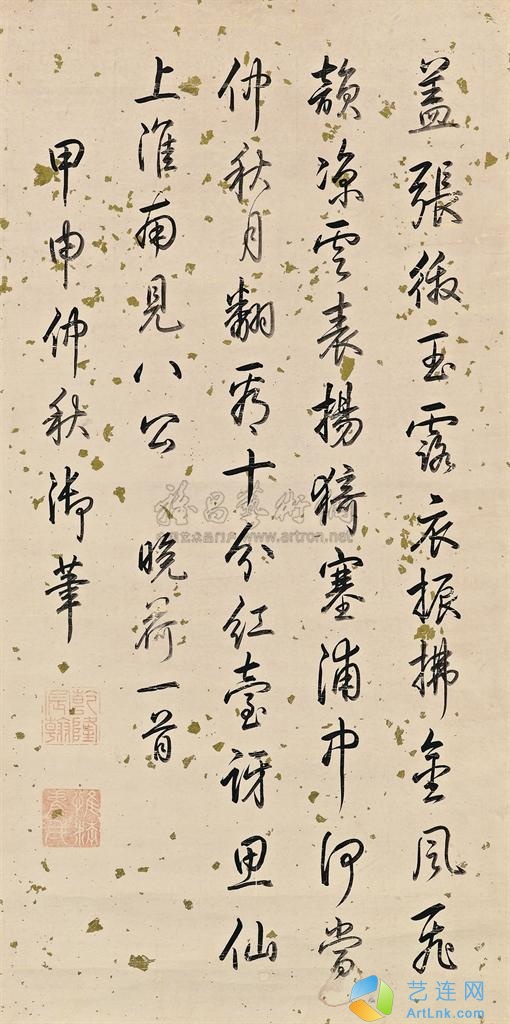 蓋張微玉露衣振拂金風飛
韻涼雲表揚猗塞浦中何當
仲秋月翻看十分紅臺訝思仙
上淮南見八公 晚荷一首
甲申仲秋御筆
乾隆宸翰
www.artron.net
艺连网
ArtLnk.com